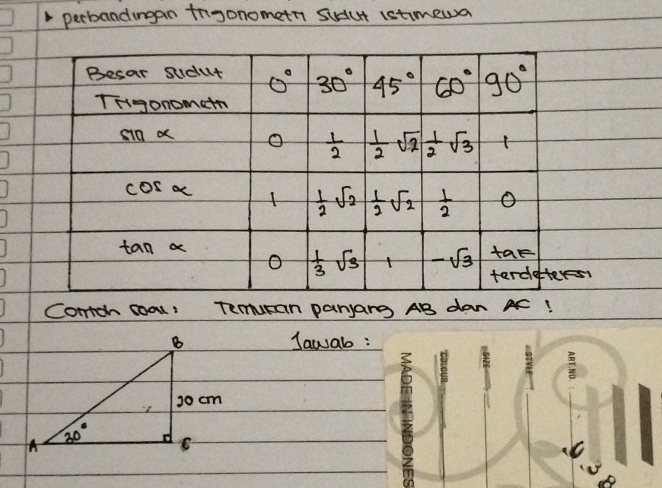 ▸ perbandingan trigonometri sudut istimewa
Besar sudut
Trigonometri
0° 30° 45° 60° 90°
sin α 0 1/2 1/2 √2 1/2 √3 1
cos α 1 1/2 √2 1/2 √2 1/2 0
tan α 0 1/3 √3 1 -√3 tak
Contoh soal : Temukan panjang AB dan AC !
Jawab :
B
A 30° C
cm
MADE IN INDONES
COLOUR
SIZE
STYLE
ART.NO.